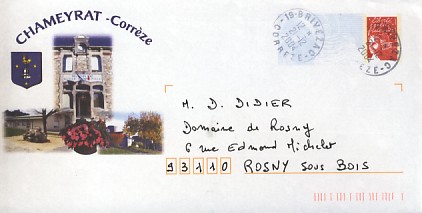 CHAMEYRAT - Corrèze
19-BRIVE
CORREZE
M. D. DIDIER
Domaine de Rosny
6 rue Edmond Michelet
93110 ROSNY SOUS BOIS